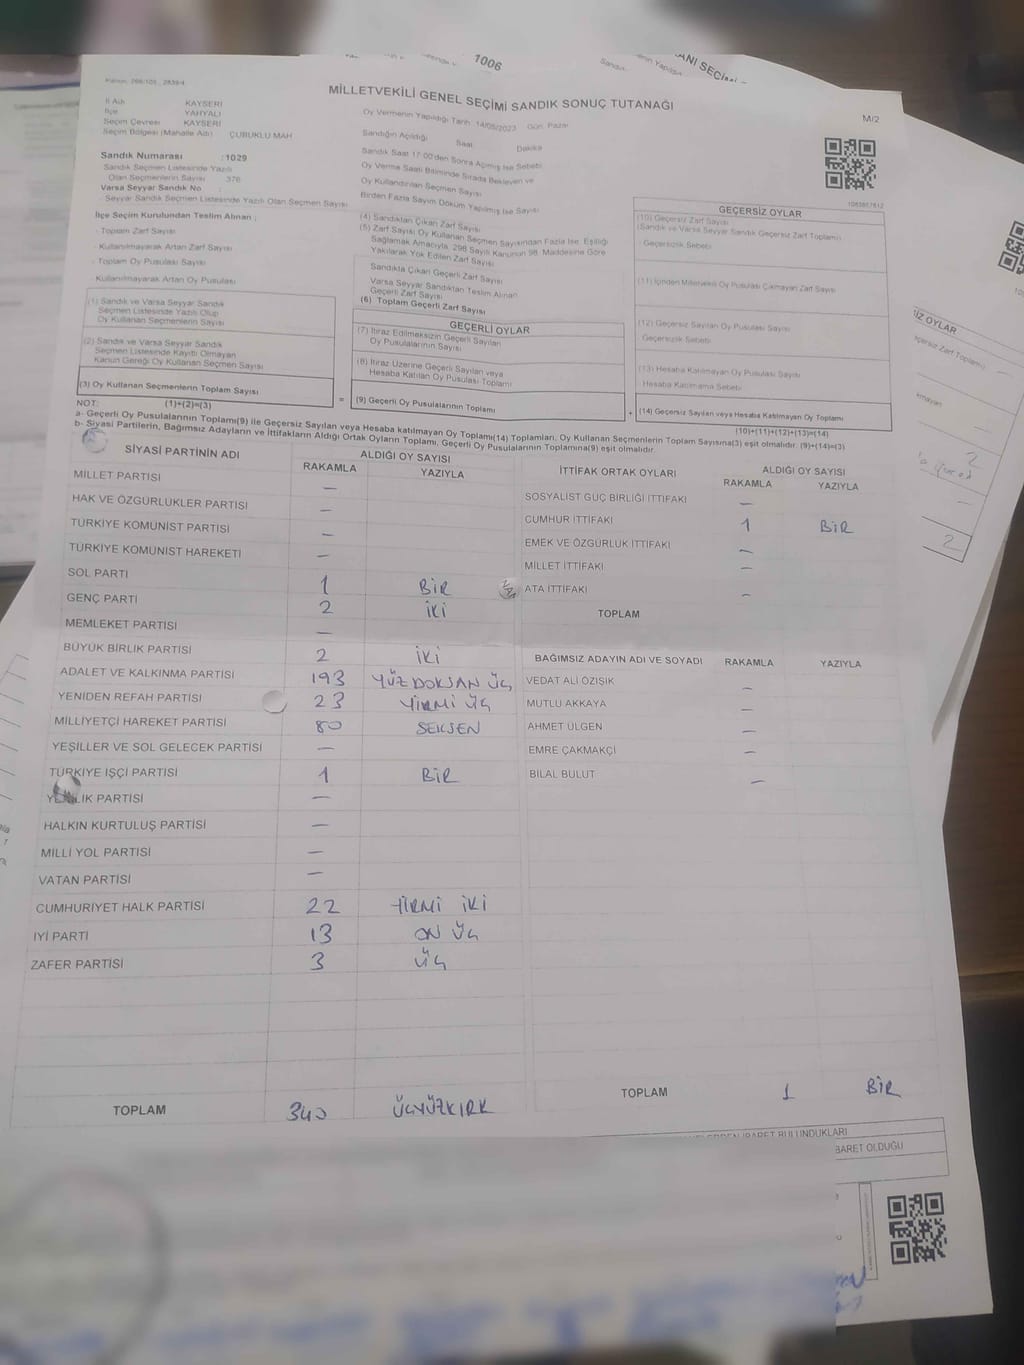 1006
ANI SEÇİMİ
Kanun: 298/105 , 2839/4
MİLLETVEKİLİ GENEL SEÇİMİ SANDIK SONUÇ TUTANAĞI
M/2
İl Adı KAYSERİ
İlçe YAHYALI
Seçim Çevresi KAYSERİ
Seçim Bölgesi (Mahalle Adı) ÇUBUKLU MAH
Sandık Numarası :1029
Sandık Seçmen Listesinde Yazılı
Olan Seçmenlerin Sayısı 376
Varsa Seyyar Sandık No :
Seyyar Sandık Seçmen Listesinde Yazılı Olan Seçmen Sayısı
İlçe Seçim Kurulundan Teslim Alınan :
- Toplam Zarf Sayısı
- Kullanılmayarak Artan Zarf Sayısı
- Toplam Oy Pusulası Sayısı
- Kullanılmayarak Artan Oy Pusulası
(1) Sandık ve Varsa Seyyar Sandık
Seçmen Listesinde Yazılı Olup
Oy Kullanan Seçmenlerin Sayısı
(2) Sandık ve Varsa Seyyar Sandık
Seçmen Listesinde Kayıtlı Olmayan
Kanun Gereği Oy Kullanan Seçmen Sayısı
(3) Oy Kullanan Seçmenlerin Toplam Sayısı
(1)+(2)=(3)
Oy Vermenin Yapıldığı Tarih: 14/05/2023 Gün: Pazar
Sandığın Açıldığı Saat: Dakika
Sandık Saat 17:00'den Sonra Açılmış İse Sebebi
Oy Verme Saati Bitiminde Sırada Bekleyen ve
Oy Kullandırılan Seçmen Sayısı
Birden Fazla Sayım Döküm Yapılmış İse Sayısı
(4) Sandıktan Çıkan Zarf Sayısı
(5) Zarf Sayısı Oy Kullanan Seçmen Sayısından Fazla İse, Eşitliği
Sağlamak Amacıyla, 298 Sayılı Kanunun 98. Maddesine Göre
Yakılarak Yok Edilen Zarf Sayısı
Sandıkta Çıkan Geçerli Zarf Sayısı
Varsa Seyyar Sandıktan Teslim Alınan
Geçerli Zarf Sayısı
(6) Toplam Geçerli Zarf Sayısı
GEÇERLİ OYLAR
(7) İtiraz Edilmeksizin Geçerli Sayılan
Oy Pusulalarının Sayısı
(8) İtiraz Üzerine Geçerli Sayılan veya
Hesaba Katılan Oy Pusulası Toplamı
= (9) Geçerli Oy Pusulalarının Toplamı
1083857812
GEÇERSİZ OYLAR
(10) Geçersiz Zarf Sayısı
(Sandık ve Varsa Seyyar Sandık Geçersiz Zarf Toplamı)
- Geçersizlik Sebebi:
(11) İçinden Milletvekili Oy Pusulası Çıkmayan Zarf Sayısı
(12) Geçersiz Sayılan Oy Pusulası Sayısı
Geçersizlik Sebebi:
(13) Hesaba Katılmayan Oy Pusulası Sayısı
- Hesaba Katılmama Sebebi:
+ (14) Geçersiz Sayılan veya Hesaba Katılmayan Oy Toplamı
(10)+(11)+(12)+(13)=(14)
NOT:
a- Geçerli Oy Pusulalarının Toplamı(9) ile Geçersiz Sayılan veya Hesaba katılmayan Oy Toplamı(14) Toplamları, Oy Kullanan Seçmenlerin Toplam Sayısına(3) eşit olmalıdır. (9)+(14)=(3)
b- Siyasi Partilerin, Bağımsız Adayların ve İttifakların Aldığı Ortak Oyların Toplamı, Geçerli Oy Pusulalarının Toplamına(9) eşit olmalıdır.
SİYASİ PARTİNİN ADI ALDIĞI OY SAYISI
RAKAMLA YAZIYLA
MİLLET PARTİSI —
HAK VE ÖZGÜRLÜKLER PARTİSİ —
TÜRKİYE KOMÜNİST PARTİSİ —
TÜRKİYE KOMÜNİST HAREKETİ —
SOL PARTİ 1 BİR
GENÇ PARTİ 2 İKİ
MEMLEKET PARTİSİ —
BÜYÜK BİRLİK PARTİSİ 2 İKİ
ADALET VE KALKINMA PARTİSİ 193 YÜZDOKSAN ÜÇ
YENİDEN REFAH PARTİSİ 23 YİRMİ ÜÇ
MİLLİYETÇİ HAREKET PARTİSİ 80 SEKSEN
YEŞİLLER VE SOL GELECEK PARTİSİ —
TÜRKİYE İŞÇİ PARTİSİ 1 BİR
YENİLİK PARTİSİ —
HALKIN KURTULUŞ PARTİSİ —
MİLLİ YOL PARTİSİ —
VATAN PARTİSİ —
CUMHURİYET HALK PARTİSİ 22 YİRMİ İKİ
İYİ PARTİ 13 ON ÜÇ
ZAFER PARTİSİ 3 ÜÇ
TOPLAM 340 ÜÇYÜZKIRK
İTTİFAK ORTAK OYLARI ALDIĞI OY SAYISI
RAKAMLA YAZIYLA
SOSYALİST GÜÇ BİRLİĞİ İTTİFAKI —
CUMHUR İTTİFAKI 1 BİR
EMEK VE ÖZGÜRLÜK İTTİFAKI —
MİLLET İTTİFAKI —
ATA İTTİFAKI —
TOPLAM
BAĞIMSIZ ADAYIN ADI VE SOYADI RAKAMLA YAZIYLA
VEDAT ALİ ÖZIŞIK —
MUTLU AKKAYA —
AHMET ÜLGEN —
EMRE ÇAKMAKÇİ —
BİLAL BULUT —
TOPLAM 1 BİR
İZ OYLAR
2
2
İBARET BULUNDUKLARI
BARET OLDUĞU